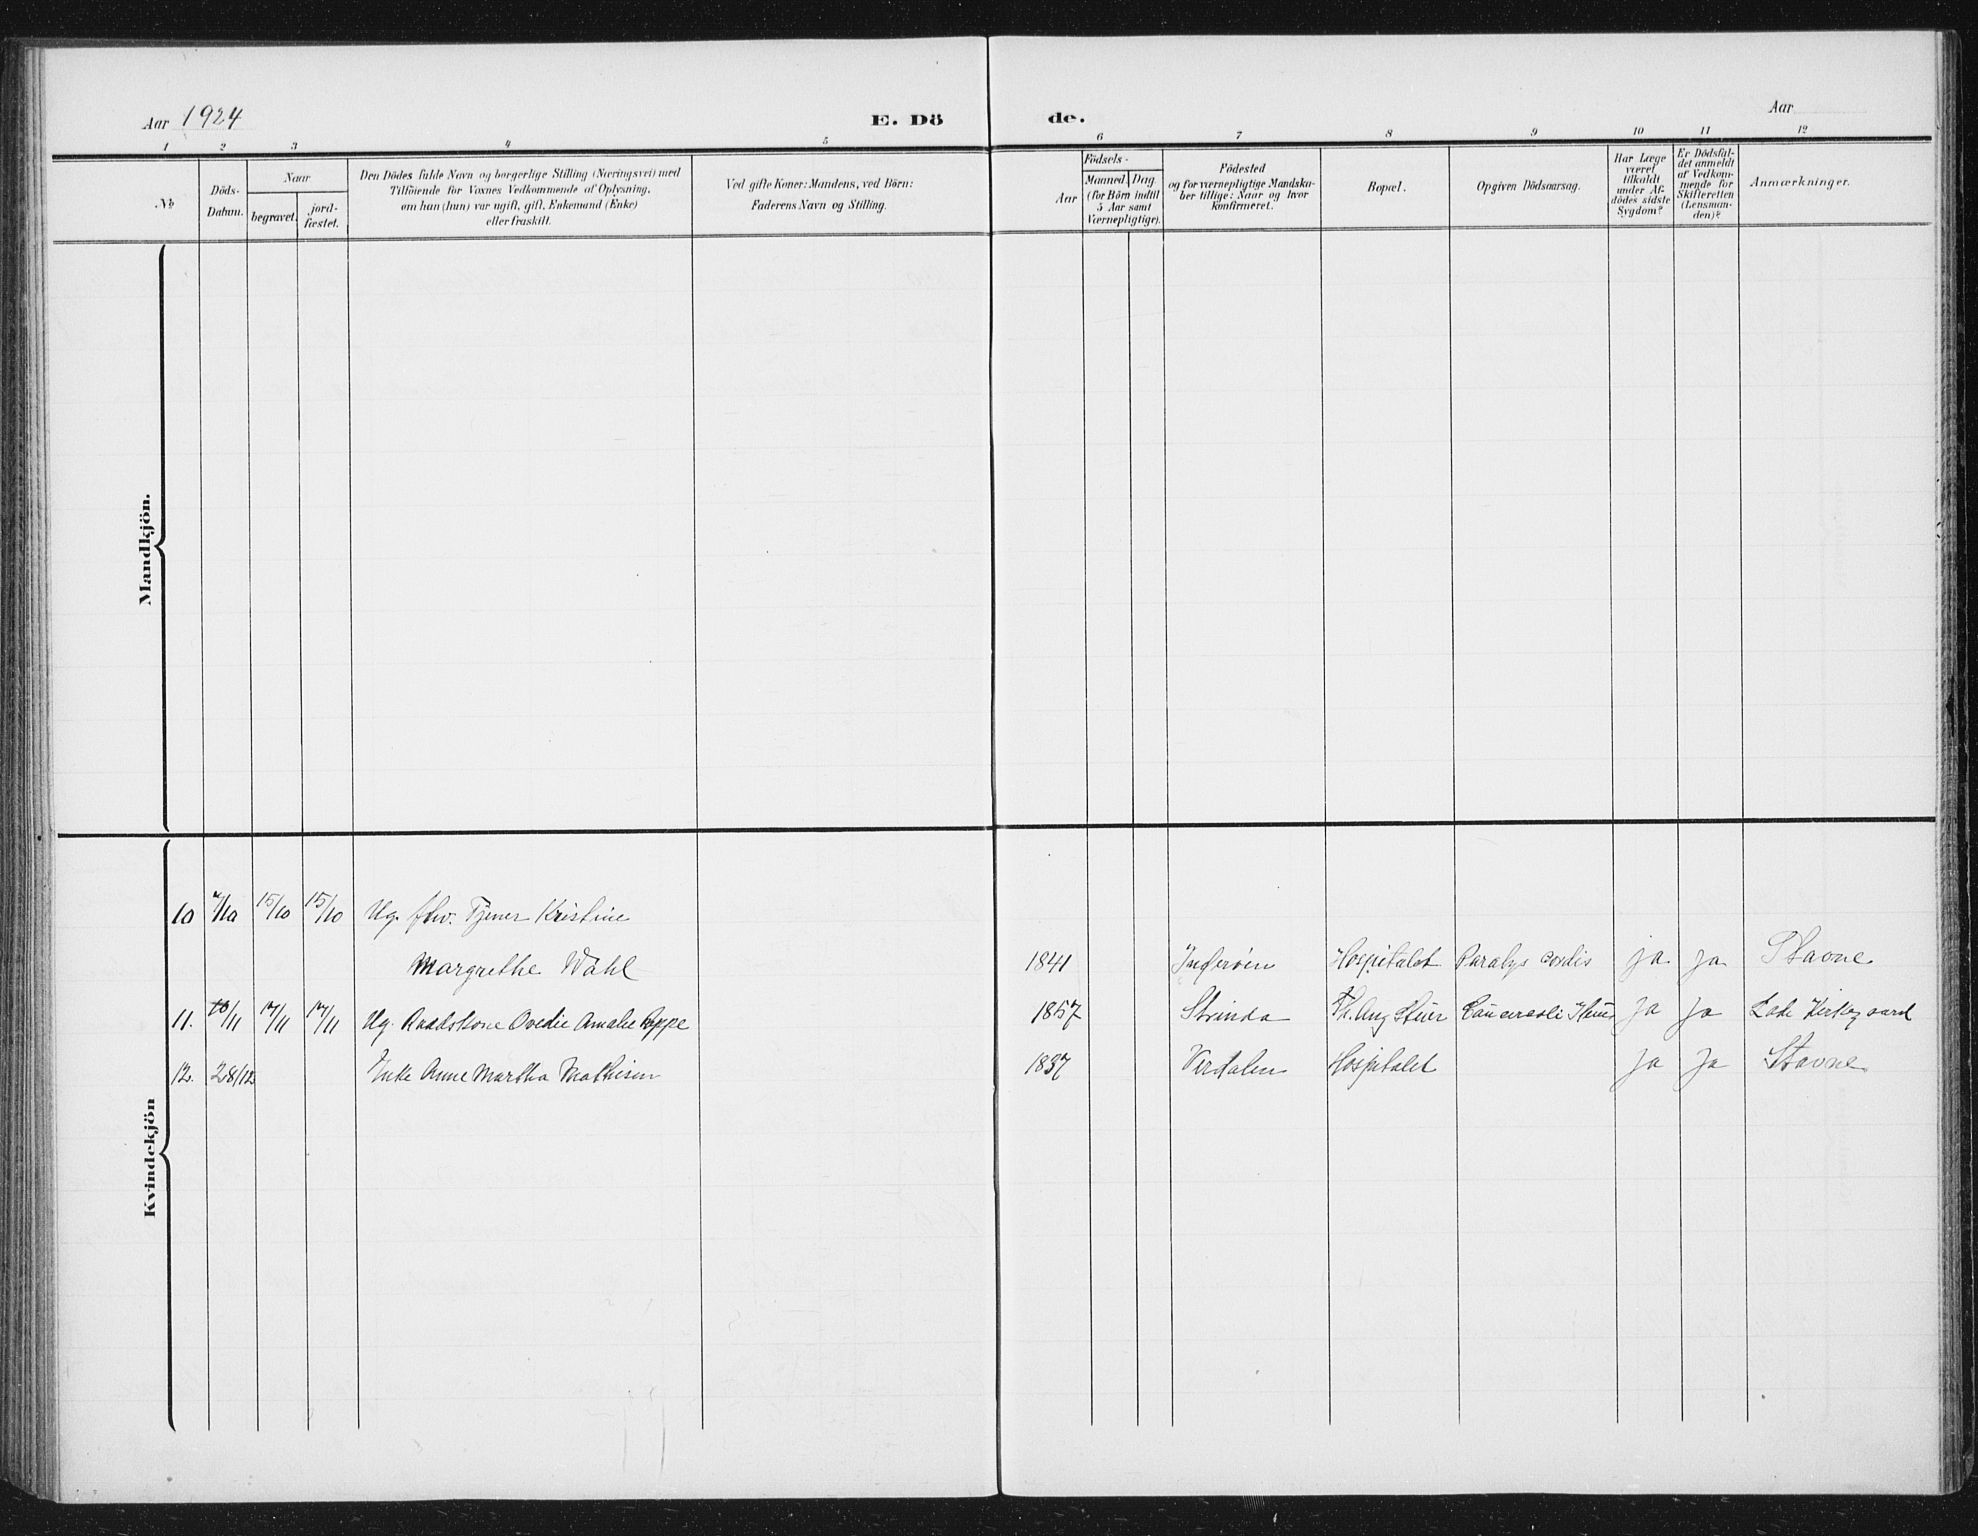 Aar 1924
E. Dö
de.
Aar
1 2 3 4 5 6 7 8 9 10 11 12
No
Döds-
Datum.
Naar
begravet.
jord-
fæstet.
Den Dödes fulde Navn og borgerlige Stilling (Næringsvei) med
Tilföiende för Voxnes Vedkommende af Oplysning,
om han (hun) var ugift, gift, Enkemand (Enke)
eller fraskilt.
Ved gifte Koner: Mandens, ved Börn:
Faderens Navn og Stilling.
Födsels-
Aar
Maaned.
Dag
(for Börn indtil
5 Aar samt
Værnepligtige).
Födested
og for værnepligtige Mandska-
ber tillige: Naar og hvor
konfirmeret.
Bopæl.
Opgiven Dödsaarsag.
Har Læge
været
tilkaldt
under Af-
dödes sidste
Sygdom?
Er Dödsfal-
det anmeldt
af Vedkom-
mende for
Skifteretten
(Lensman-
den)?
Anmærkninger.
Mandkjön.
Kvindekjön
10 /10 15/10 15/10 Ug. fhv. Tjener Kristine
Margrethe Wahl 1841 Inderöen Hospitalet Paralys cordis ja ja Stavne
11. /11 17/11 17/11 Ug. Ovedie Amalie 1857 Strinda Th. Ang Stuer ja ja Lade Kirkegaard
12. 28/12 Enke Anne Martha Mathisen 1837 Verdalen Hospitalet ja ja Stavne